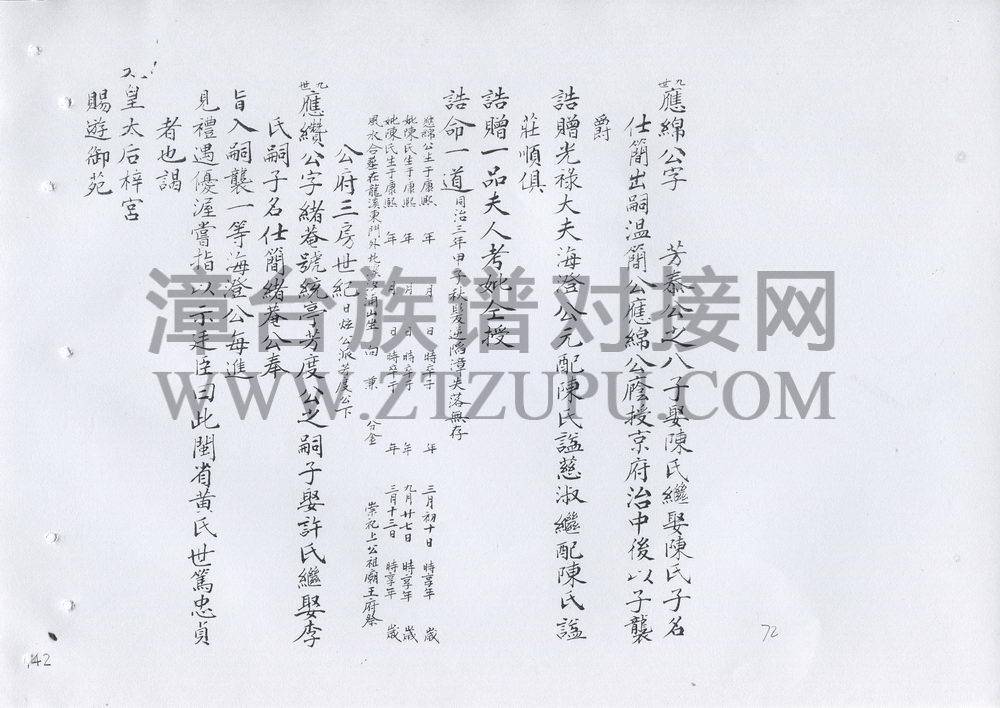 九世應綿公字　芳泰公之八子娶陳氏繼娶陳氏子名
仕簡出嗣溫簡公應綿公廕授京府治中後以子襲
爵
誥贈光祿大夫海澄公元配陳氏諡慈淑繼配陳氏諡
莊順俱
誥贈一品夫人考妣仝授
誥命一道同治三年甲子秋髮逆陷漳失落無存
應綿公生于康熙　年　月　日　時卒于　年　三月初十日　時享年　歲
妣陳氏生于康熙　年　月　日　時卒于　年　九月廿七日　時享年　歲
妣陳氏生于康熙　年　月　日　時卒于　年　三月十三日　時享年　歲
風水合葬在龍溪東門外北溪浦山坐　向　兼　分金　崇祀上公祖廟王府祭
公府三房世紀日炷公派芳度公下
九世應纘公字緒菴號統亭芳度公之嗣子娶許氏繼娶李
氏嗣子名仕簡緒菴公奉
旨入嗣襲一等海澄公每進
見禮遇優渥嘗指以示廷臣曰此閩省黃氏世篤忠貞
者也謁
皇太后梓宮
賜遊御苑
72
142
漳台族谱对接网
WWW.ZTZUPU.COM